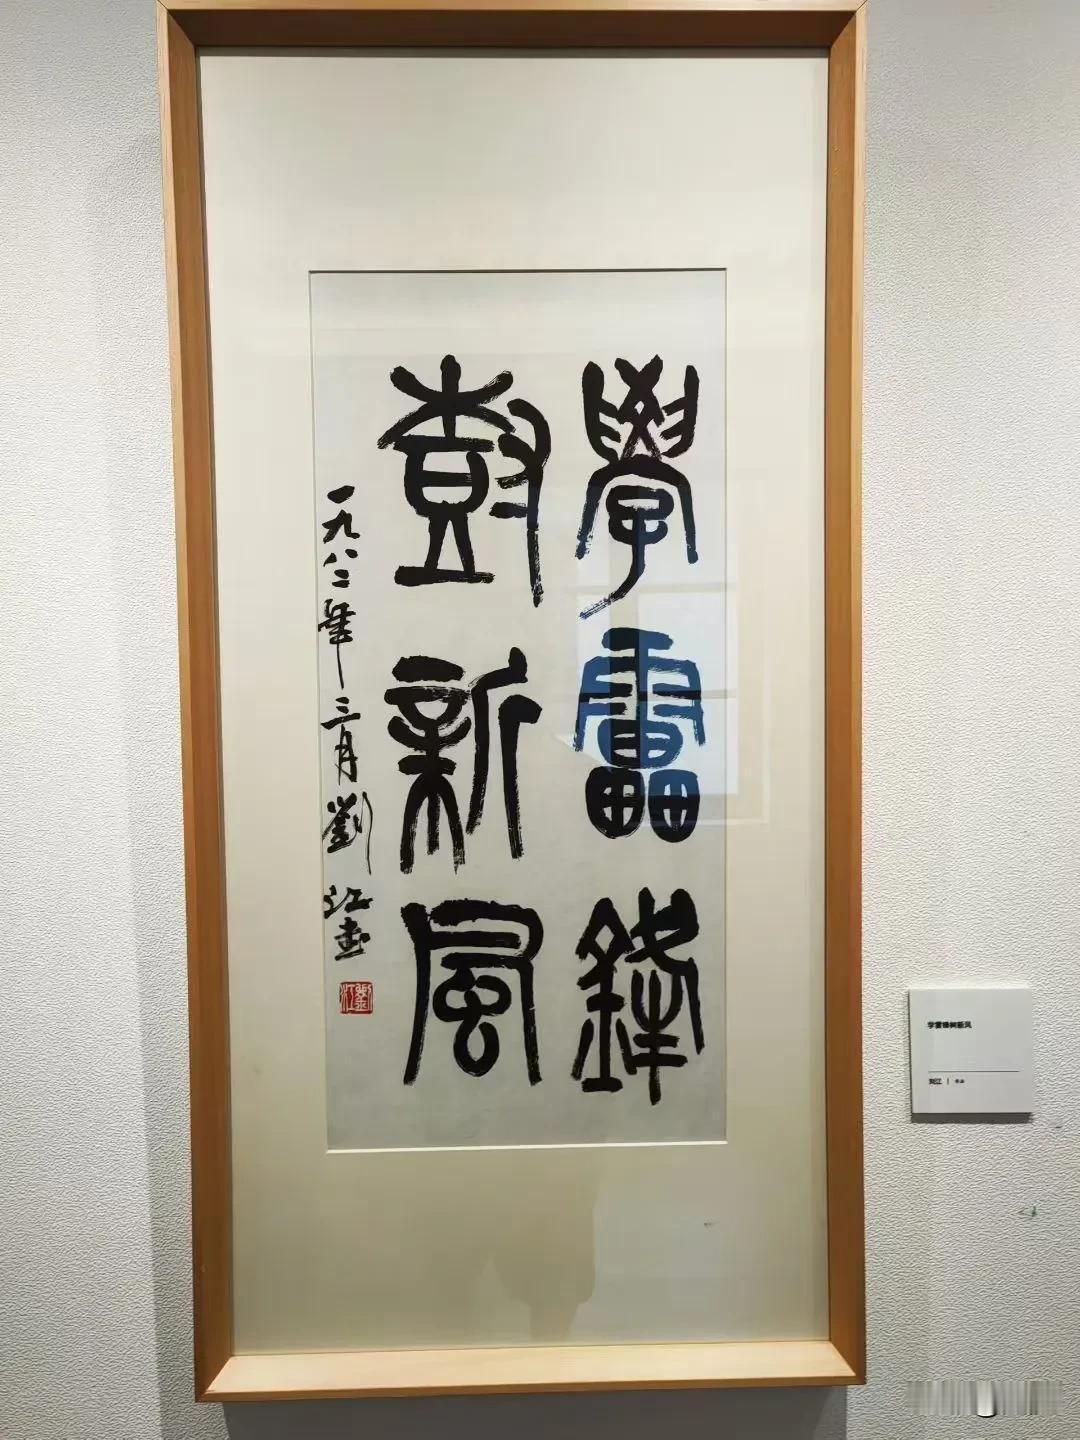 學雷鋒
尌新風
一九八二年三月劉江書
劉江
学雷锋树新风
刘江 | 书法